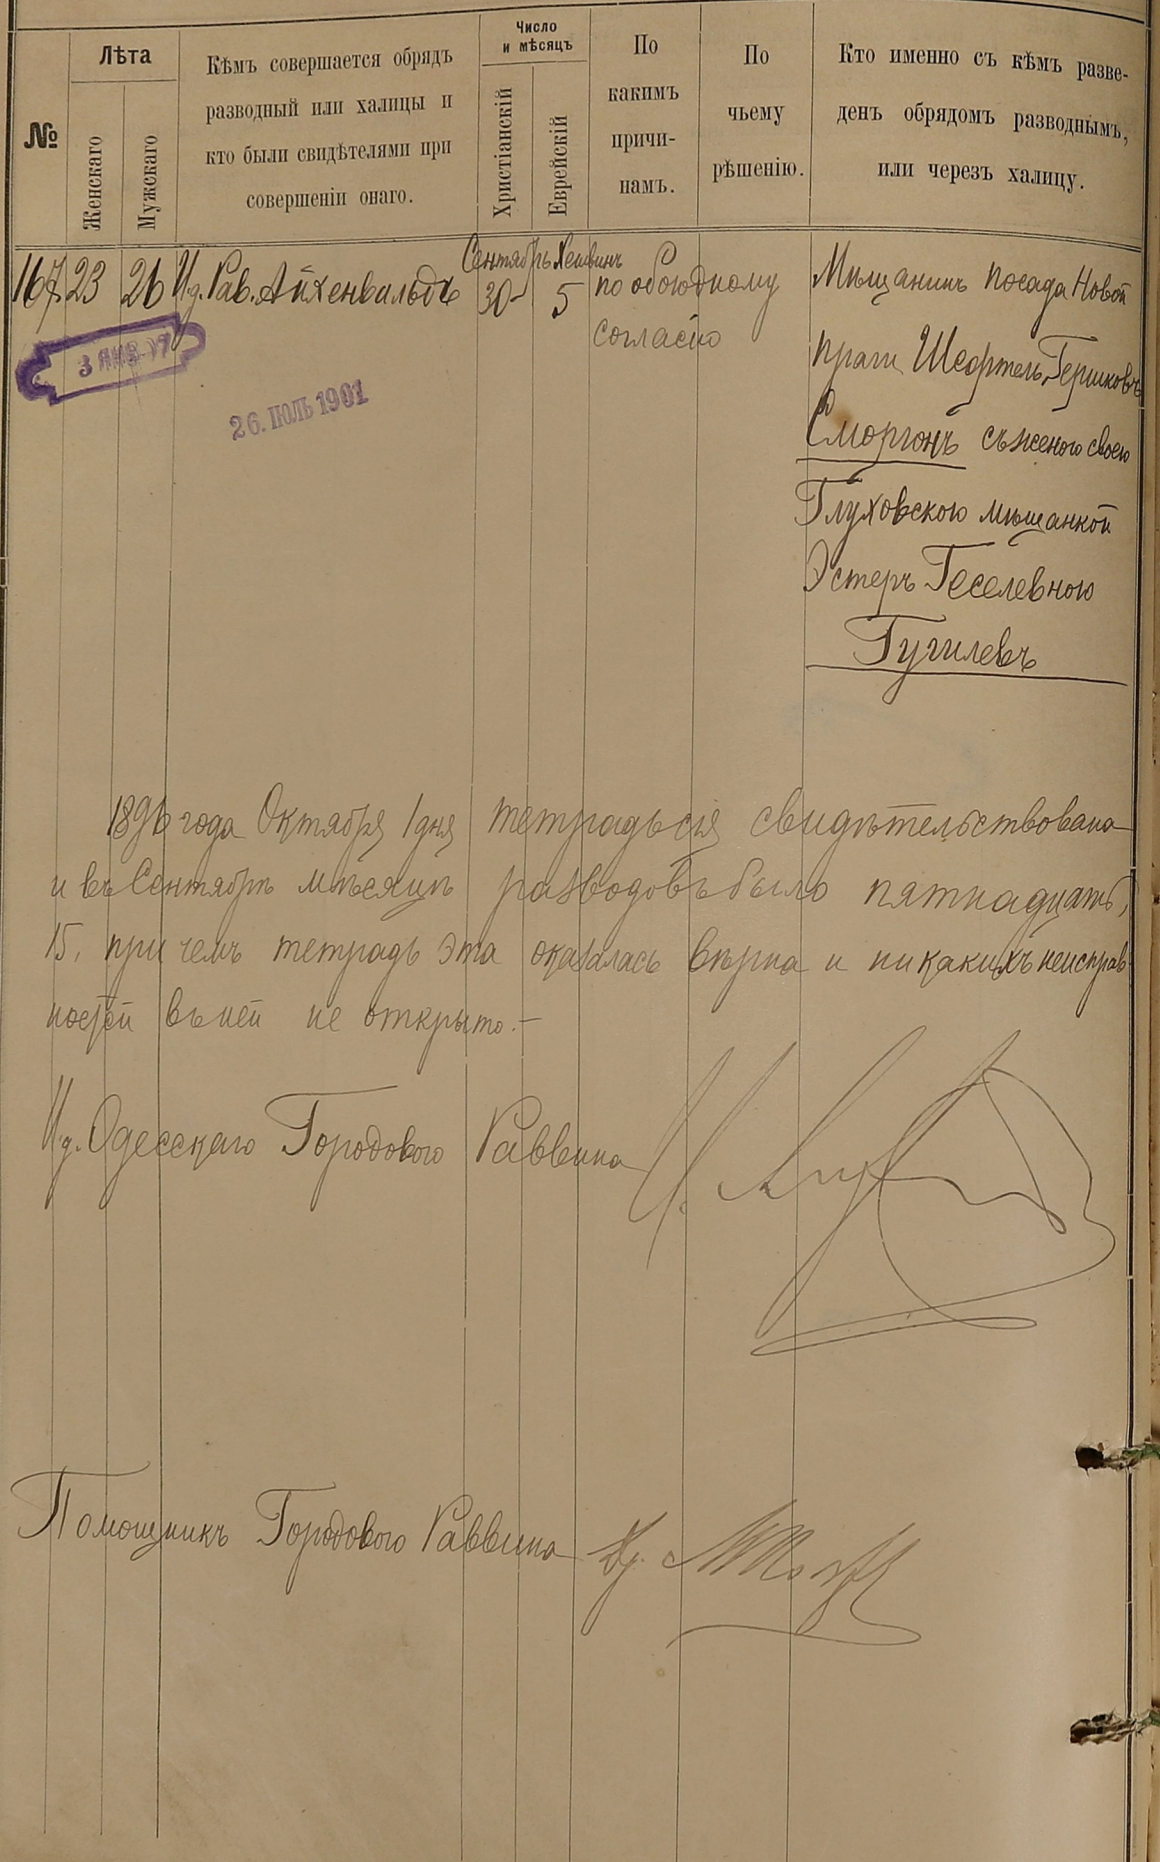 №
Лѣта
Женскаго
Мужскаго
Кѣмъ совершается обрядъ
разводный или халицы и
кто были свидѣтелями при
совершеніи онаго.
Число
и мѣсяцъ
Христіанскій
Еврейскій
По
какимъ
причи-
намъ.
По
чьему
рѣшенію.
Кто именно съ кѣмъ разве-
денъ обрядомъ разводнымъ,
или черезъ халицу.
167
23
26
И.д. Рав. Айхенвальдъ
Сентябрь
30
Хешвинъ
5
по обоюдному
согласію
Мѣщанинъ посада Новой
Праги Гершковъ
Сморгонъ съ женою своею
Глуховскою мѣщанкой
Эстеръ Геселевною
Гугилевъ
26. ІЮЛЬ 1901
1896 года Октября 1 дня тетрадь сія свидѣтельствована
и въ Сентябрѣ мѣсяцѣ разводовъ было пятнадцать,
15, при чемъ тетрадь эта оказалась вѣрна и никакихъ неисправ-
ностей въ ней не открыто.—
И.д. Одесскаго Городового Раввина
Помощникъ Городового Раввина